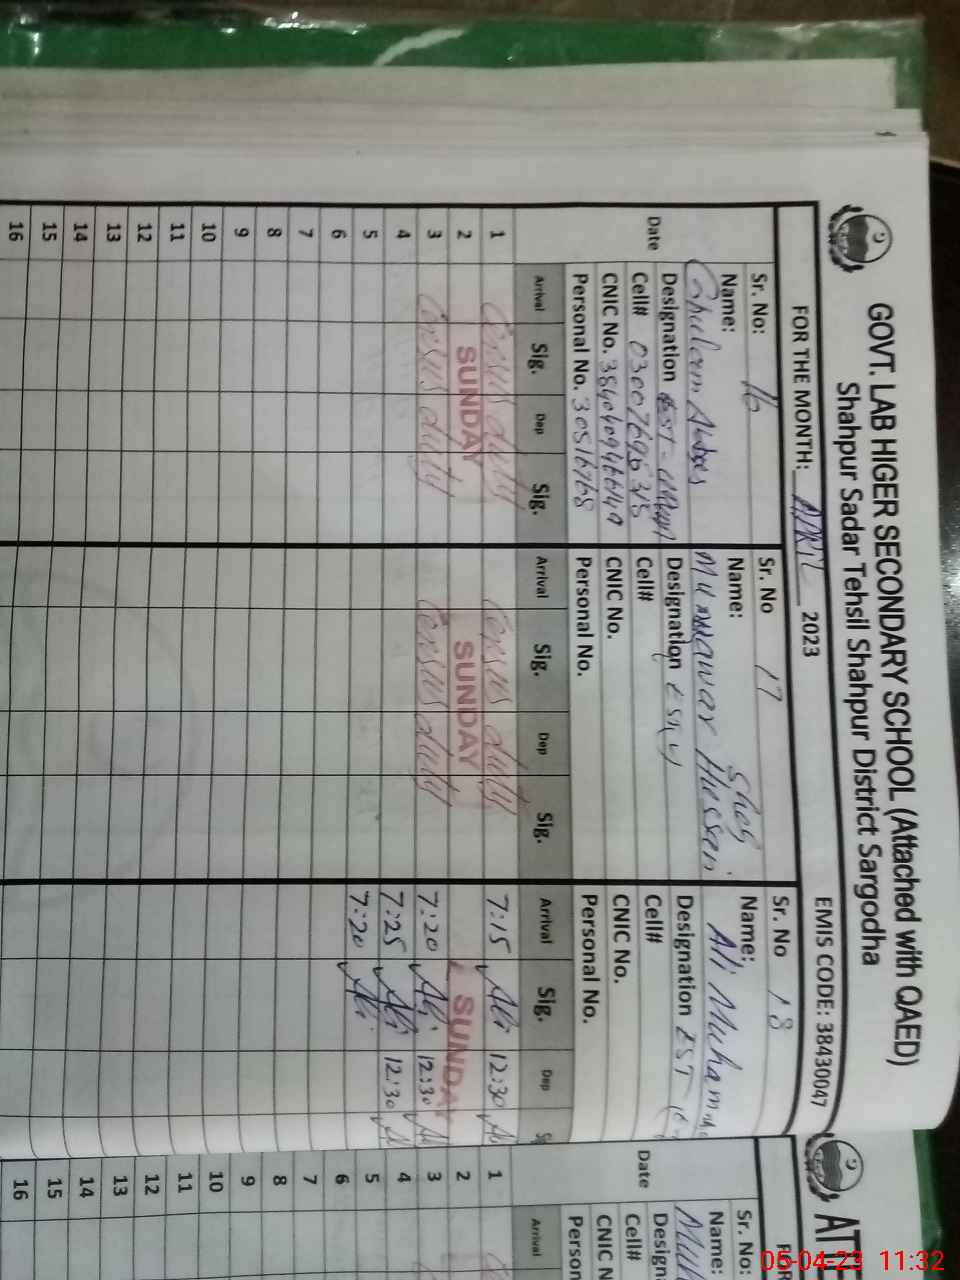 GOVT. LAB HIGER SECONDARY SCHOOL (Attached with QAED)
Shahpur Sadar Tehsil Shahpur District Sargodha
FOR THE MONTH: APRIL 2023 EMIS CODE: 38430047
Date
Sr. No: 16
Name:
Ghulam Abbas
Designation EST-
Cell# 0300
CNIC No.
Personal No. 30516768
Arrival Sig. Dep Sig.
Sr. No 17
Name:
Munawar Hussain
Shah
Designation
Cell#
CNIC No.
Personal No.
Arrival Sig. Dep Sig.
Sr. No 18
Name:
Ali Muhammad
Designation EST
Cell#
CNIC No.
Personal No.
Arrival Sig. Dep
1 Census duty Census duty 7:15 Ali 12:30
2 SUNDAY SUNDAY SUNDAY
3 Census duty Census duty 7:20 Ali 12:30
4 7:25 Ali 12:30
5 7:20 Ali
6
7
8
9
10
11
12
13
14
15
16
Date
Sr. No:
Name:
Cell#
Arrival
1
2
3
4
5
6
7
8
9
10
11
12
13
14
15
16
05-04-23 11:32